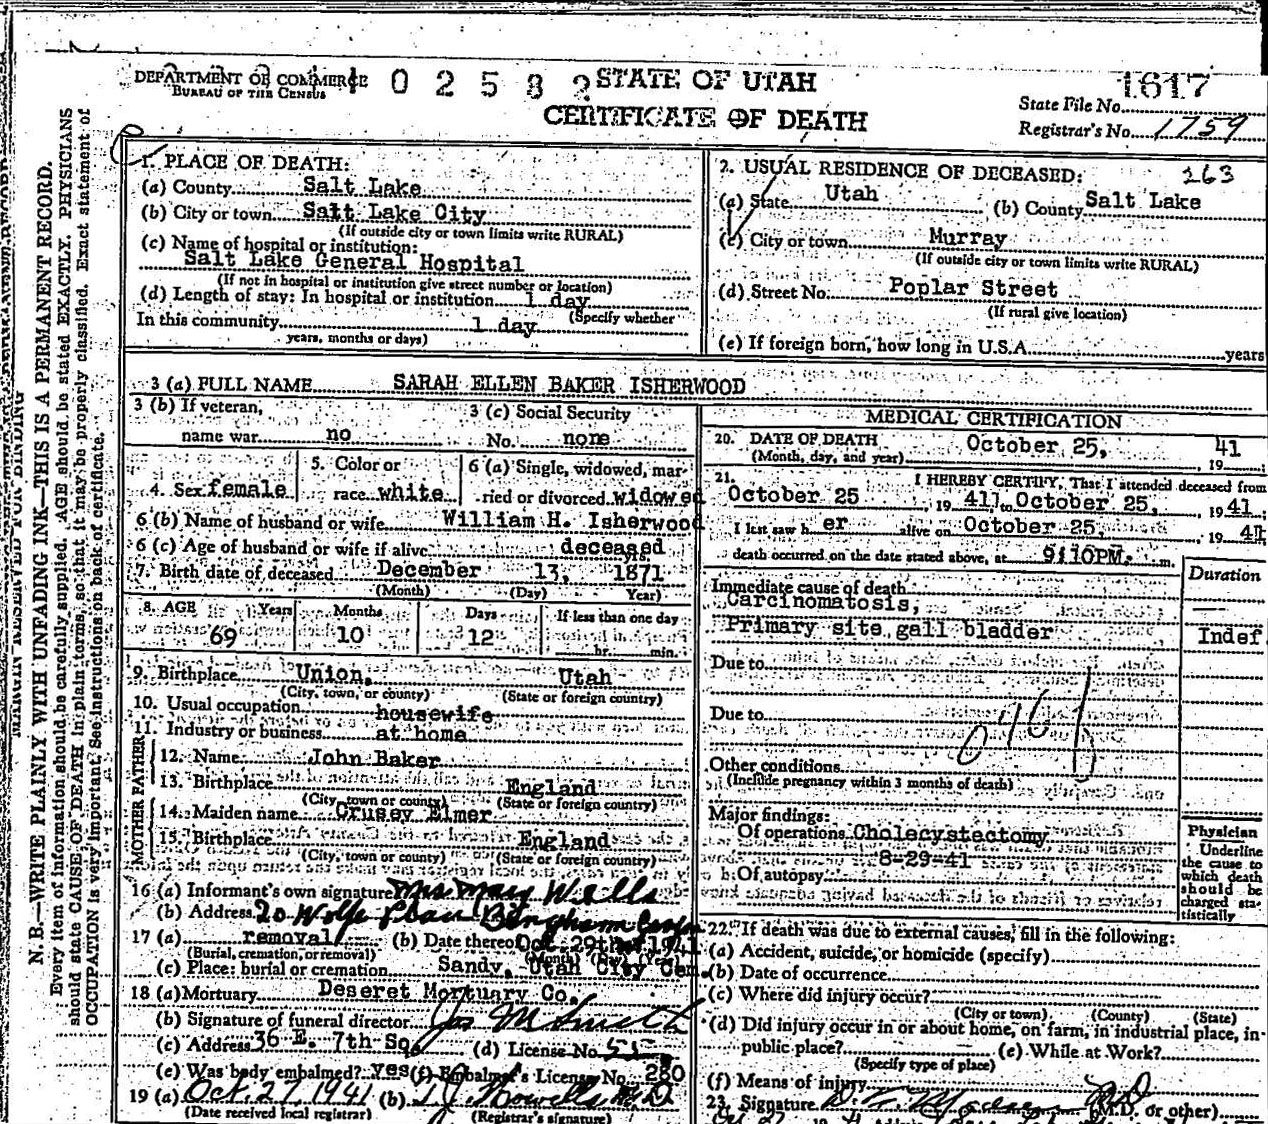 DEPARTMENT OF COMMERCE
BUREAU OF THE CENSUS
0 2 5 8 2
STATE OF UTAH
CERTIFICATE OF DEATH
1617
State File No.
Registrar's No. 1759
N. B.—WRITE PLAINLY WITH UNFADING INK—THIS IS A PERMANENT RECORD.
Every item of information should be carefully supplied. AGE should be stated EXACTLY. PHYSICIANS
should state CAUSE OF DEATH in plain terms, so that it may be properly classified. Exact statement of
OCCUPATION is very important. See instructions on back of certificate.
1. PLACE OF DEATH:
(a) County Salt Lake
(b) City or town Salt Lake City
(If outside city or town limits write RURAL)
(c) Name of hospital or institution:
Salt Lake General Hospital
(If not in hospital or institution give street number or location)
(d) Length of stay: In hospital or institution 1 day
(Specify whether
In this community 1 day
years, months or days)
2. USUAL RESIDENCE OF DECEASED: 163
(a) State Utah (b) County Salt Lake
(c) City or town Murray
(If outside city or town limits write RURAL)
(d) Street No. Poplar Street
(If rural give location)
(e) If foreign born, how long in U.S.A. years
3 (a) FULL NAME SARAH ELLEN BAKER ISHERWOOD
3 (b) If veteran,
name war no
3 (c) Social Security
No. none
4. Sex female
5. Color or
race white
6 (a) Single, widowed, mar-
ried or divorced widowed
6 (b) Name of husband or wife William H. Isherwood
6 (c) Age of husband or wife if alive deceased
7. Birth date of deceased December 13, 1871
(Month) (Day) Year)
8. AGE Years Months Days If less than one day
69 10 12 hr. min.
9. Birthplace Union, Utah
(City, town, or county) (State or foreign country)
10. Usual occupation housewife
11. Industry or business at home
FATHER
12. Name John Baker
13. Birthplace England
(City, town or county) (State or foreign country)
MOTHER
14. Maiden name Crusey Elmer
15. Birthplace England
(City, town or county) (State or foreign country)
16 (a) Informant's own signature Mrs Mary Wells
(b) Address 20 Wolfe Bingham
17 (a) removal (b) Date thereof Oct. 29th 1941
(Burial, cremation, or removal) (Month) (Day) (Year)
(c) Place: burial or cremation Sandy, Utah City Cem.
18 (a) Mortuary Deseret Mortuary Co.
(b) Signature of funeral director Jos M Smith
(c) Address 36 E. 7th So. (d) License No.
(e) Was body embalmed? yes (f) Embalmer's License No. 280
19 (a) Oct. 27, 1941 (b)
(Date received local registrar) (Registrar's signature)
MEDICAL CERTIFICATION
20. DATE OF DEATH October 25, 19 41
(Month, day, and year)
21. I HEREBY CERTIFY, That I attended deceased from
October 25, 19 41, to October 25, 19 41
I last saw h er alive on October 25, 19 41
death occurred on the date stated above, at 9:10PM. m.
Duration
Immediate cause of death
Carcinomatosis,
Primary site gall bladder Indef
Due to
Due to
Other conditions
(Include pregnancy within 3 months of death)
Major findings:
Of operations Cholecystectomy
8-29-41
Of autopsy
Physician
Underline
the cause to
which death
should be
charged sta-
tistically
22. If death was due to external causes, fill in the following:
(a) Accident, suicide, or homicide (specify)
(b) Date of occurrence
(c) Where did injury occur?
(City or town) (County) (State)
(d) Did injury occur in or about home, on farm, in industrial place, in
public place? (e) While at Work?
(Specify type of place)
(f) Means of injury
23. Signature (M.D. or other)